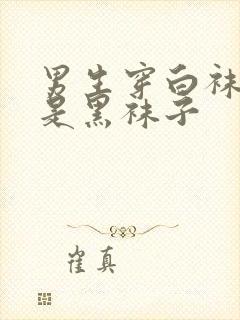 男生穿白袜
是黑袜子
崔真